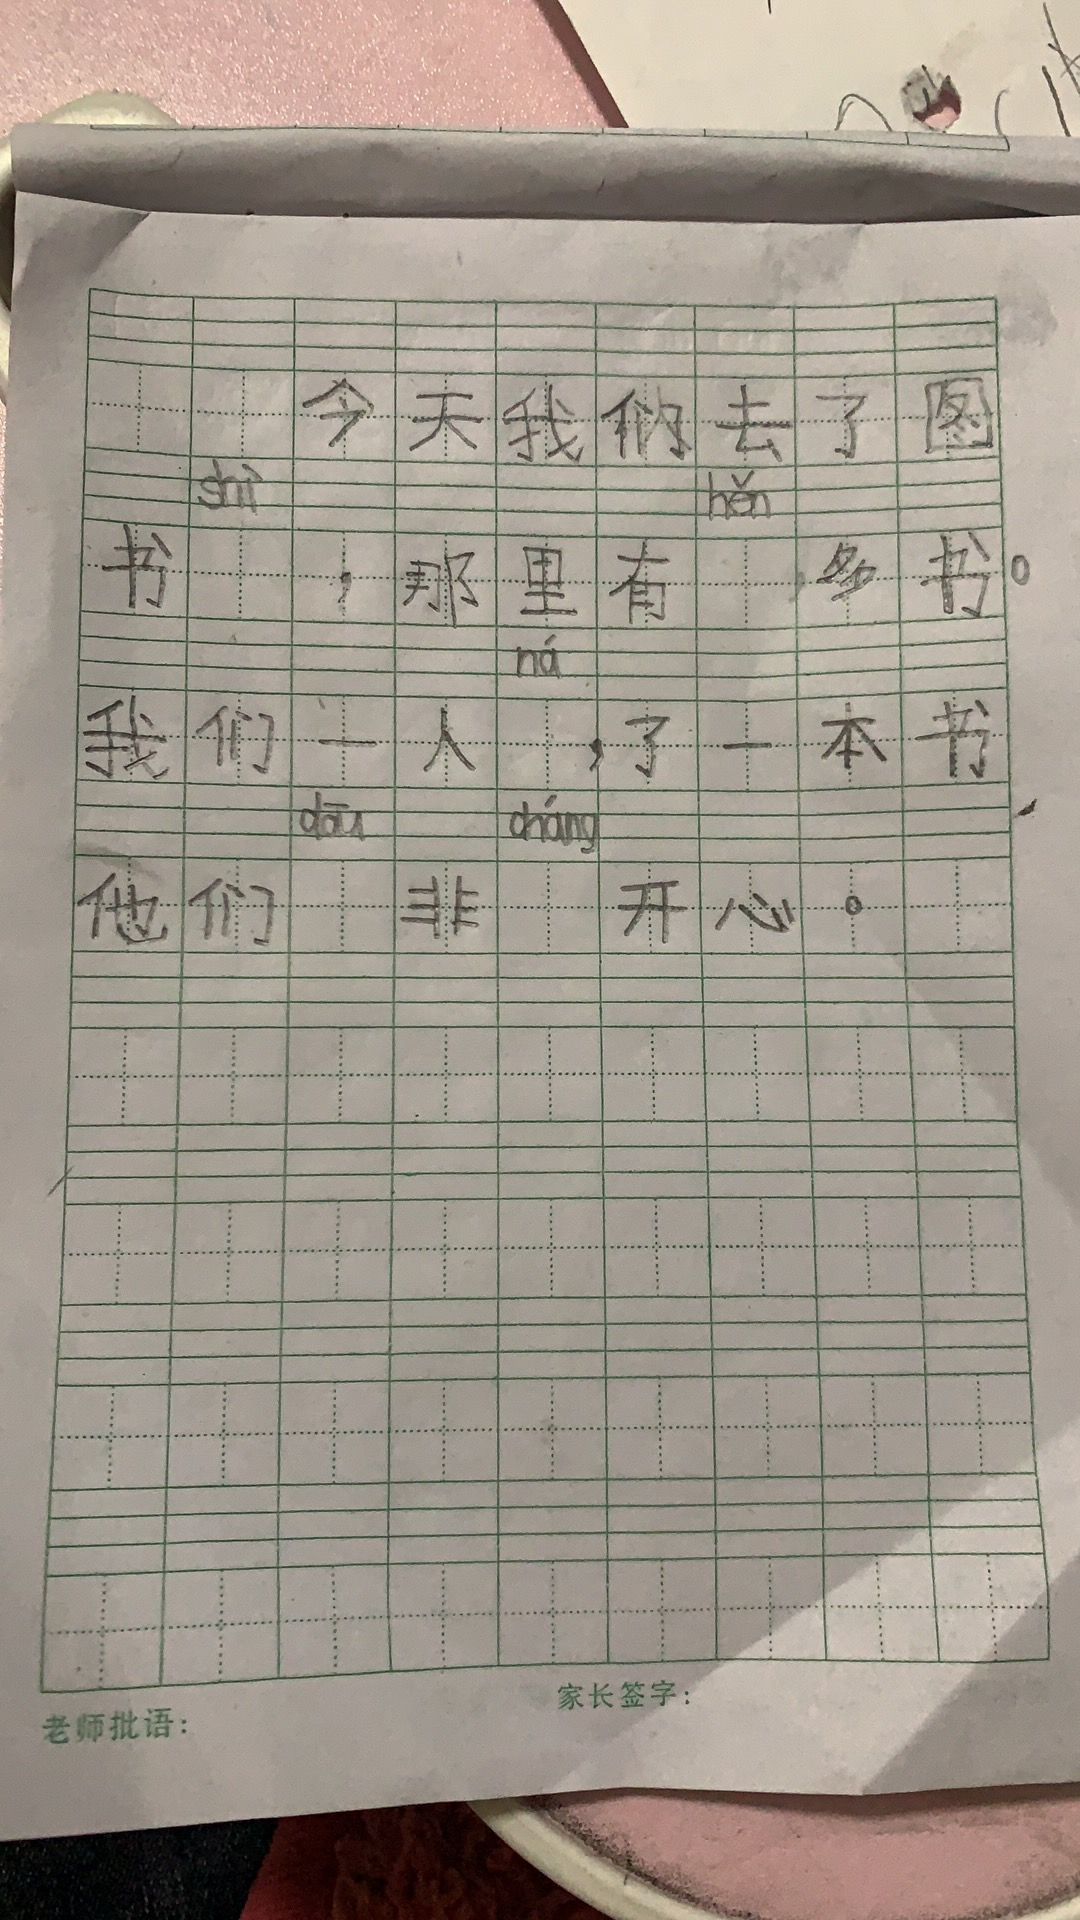 今天我们去了图
shì hěn
书 ，那里有 多书。
ná
我们一人 ，了一本书
dōu cháng
他们 非 开心。
家长签字：
老师批语：